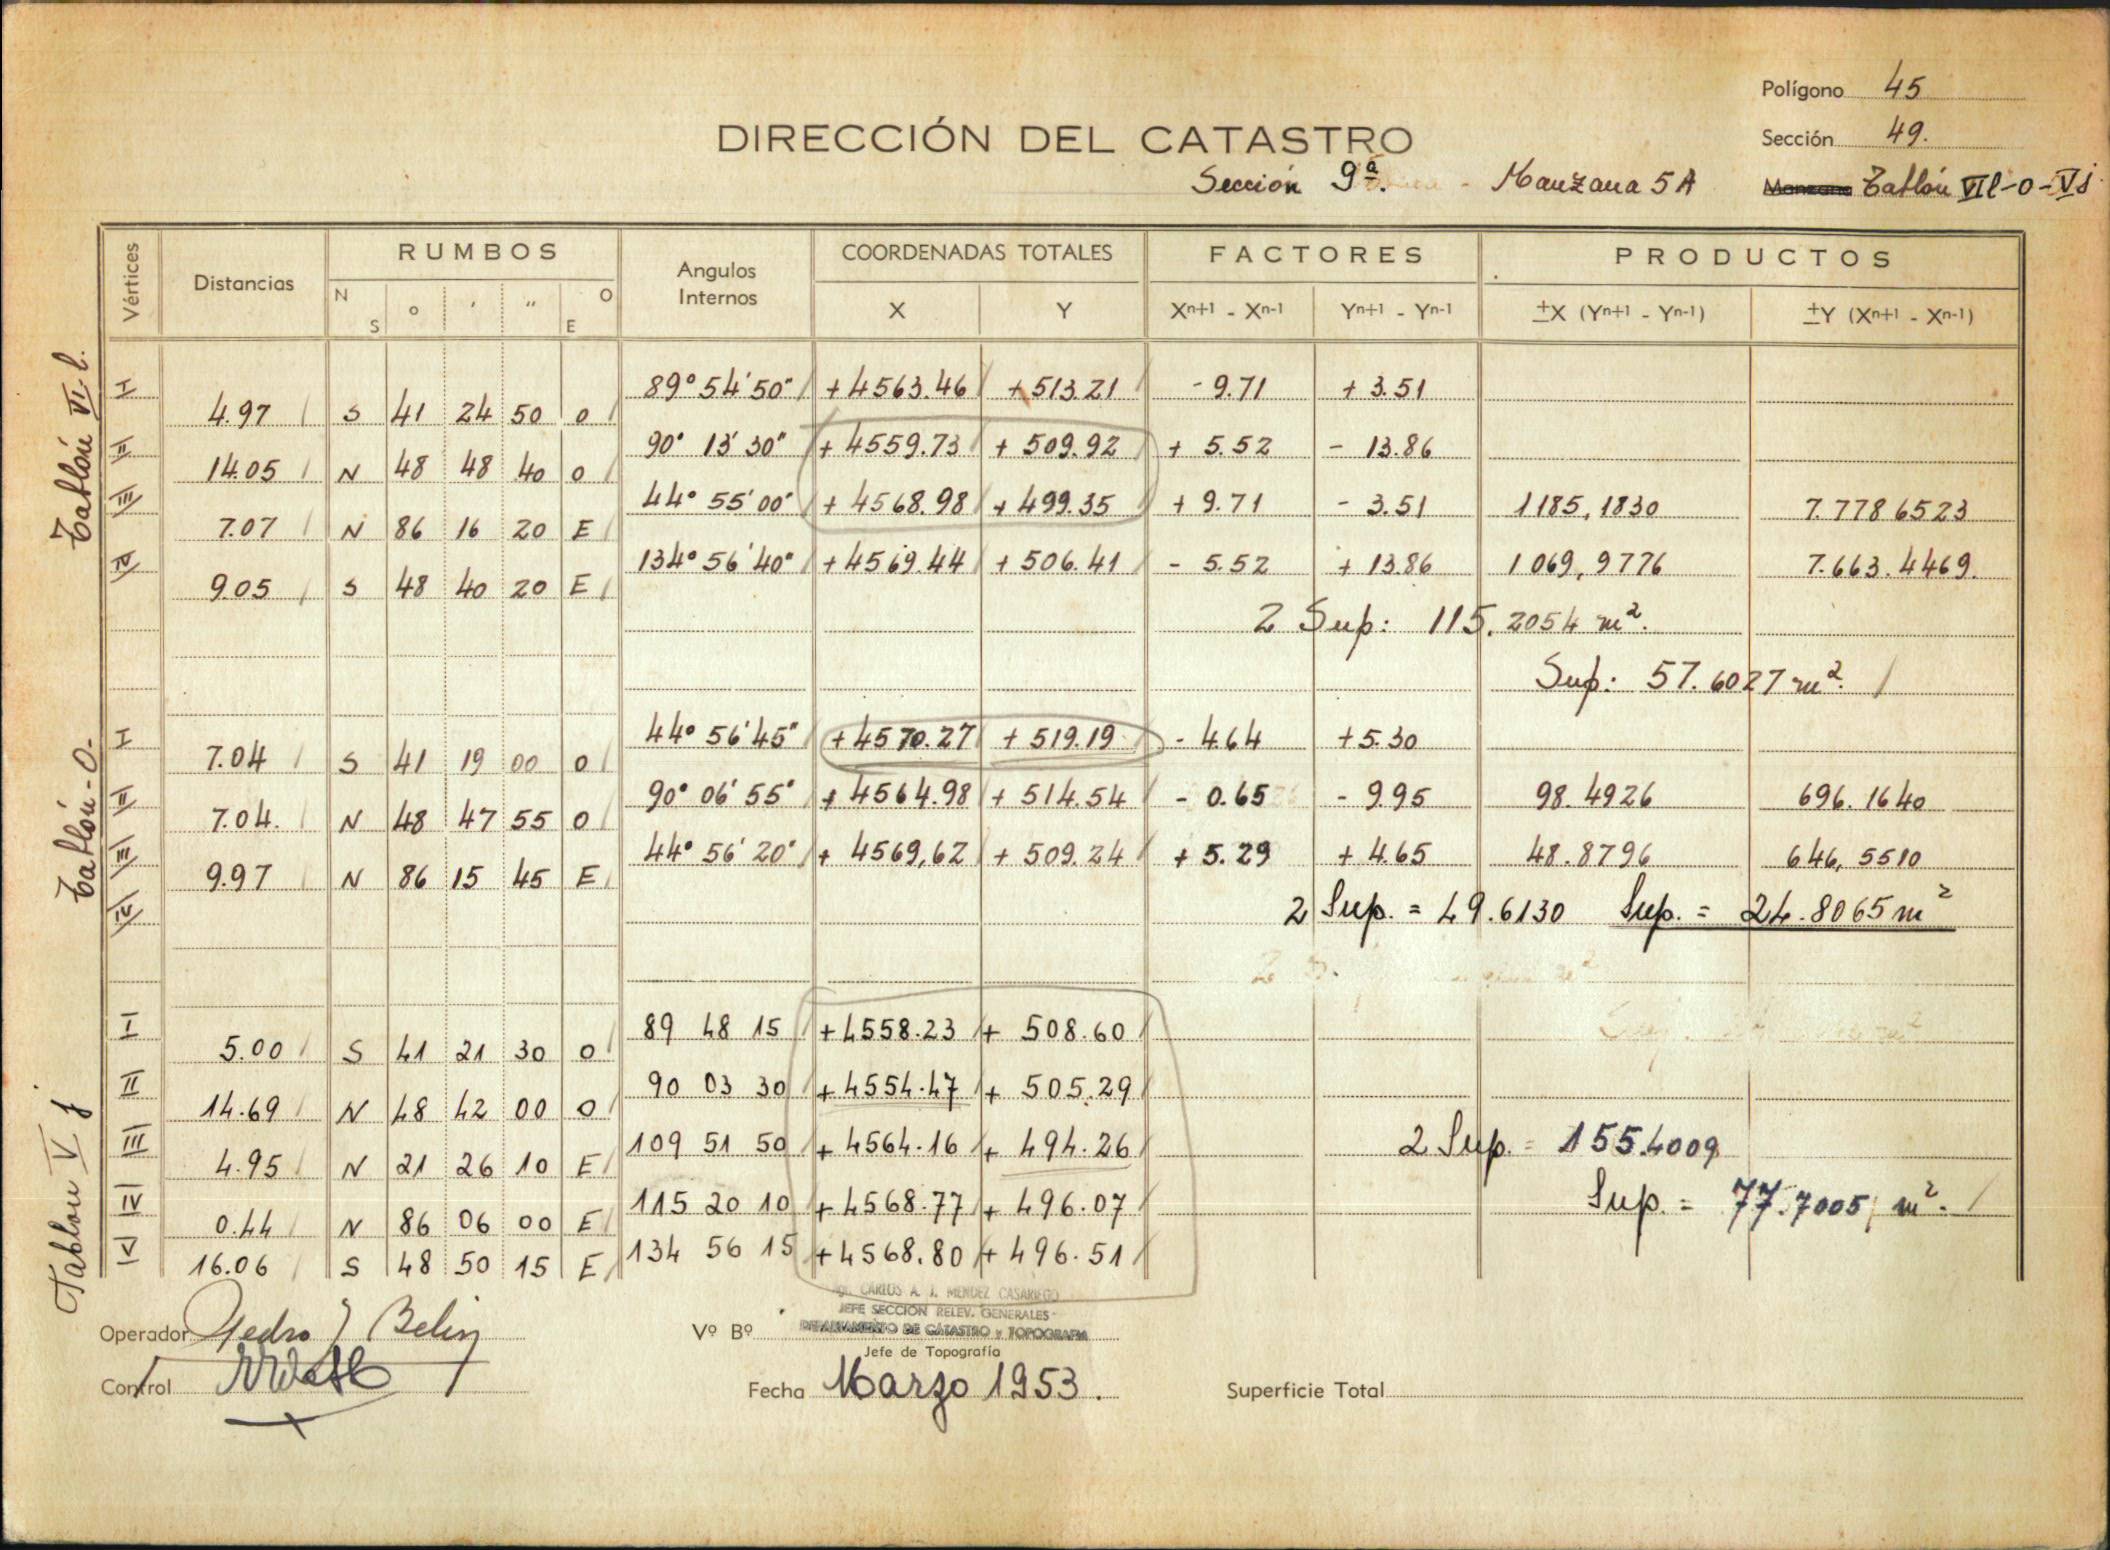 Polígono 45
DIRECCIÓN DEL CATASTRO
Sección 49.
Sección 9ª. - Manzana 5A
Manzana Tablón VIl-O-Vj
Vértices Distancias RUMBOS Angulos Internos COORDENADAS TOTALES FACTORES PRODUCTOS
N S ° ' " O E X Y Xn+1 - Xn-1 Yn+1 - Yn-1 ±X (Yn+1 - Yn-1) ±Y (Xn+1 - Xn-1)
Tablón VI l.
I 89° 54' 50" +4563.46 +513.21 -9.71 +3.51
4.97 S 41 24 50 O
II 90° 13' 30" +4559.73 +509.92 +5.52 -13.86
14.05 N 48 48 40 O
III 44° 55' 00" +4568.98 +499.35 +9.71 -3.51 1185,1830 7.778 6523
7.07 N 86 16 20 E
IV 134° 56' 40" +4569.44 +506.41 -5.52 +13.86 1069,9776 7.663.4469.
9.05 S 48 40 20 E
2 Sup: 115.2054 m².
Sup: 57.6027 m².
Tablón -O-
I 44° 56' 45" +4570.27 +519.19 -4.64 +5.30
7.04 S 41 19 00 O
II 90° 06' 55" +4564.98 +514.54 -0.65 -9.95 98.4926 696.1640
7.04. N 48 47 55 O
III 44° 56' 20" +4569,62 +509.24 +5.29 +4.65 48.8796 646,5510
9.97 N 86 15 45 E
IV 2 Sup. = 49.6130 Sup. = 24.8065 m²
Tablon V j
I 89 48 15 +4558.23 +508.60
5.00 S 41 21 30 O
II 90 03 30 +4554.47 +505.29
14.69 N 48 42 00 O
III 109 51 50 +4564.16 +494.26 2 Sup. = 155.4009
4.95 N 21 26 10 E
IV 115 20 10 +4568.77 +496.07 Sup. = 77.7005 m².
0.44 N 86 06 00 E
V 134 56 15 +4568.80 +496.51
16.06 S 48 50 15 E
CARLOS A. J. MENDEZ CASARIEGO
JEFE SECCION RELEV. GENERALES
DEPARTAMENTO DE CATASTRO y TOPOGRAFIA
Operador Pedro J Belin Vº Bº
Jefe de Topografía
Control Fecha Marzo 1953. Superficie Total